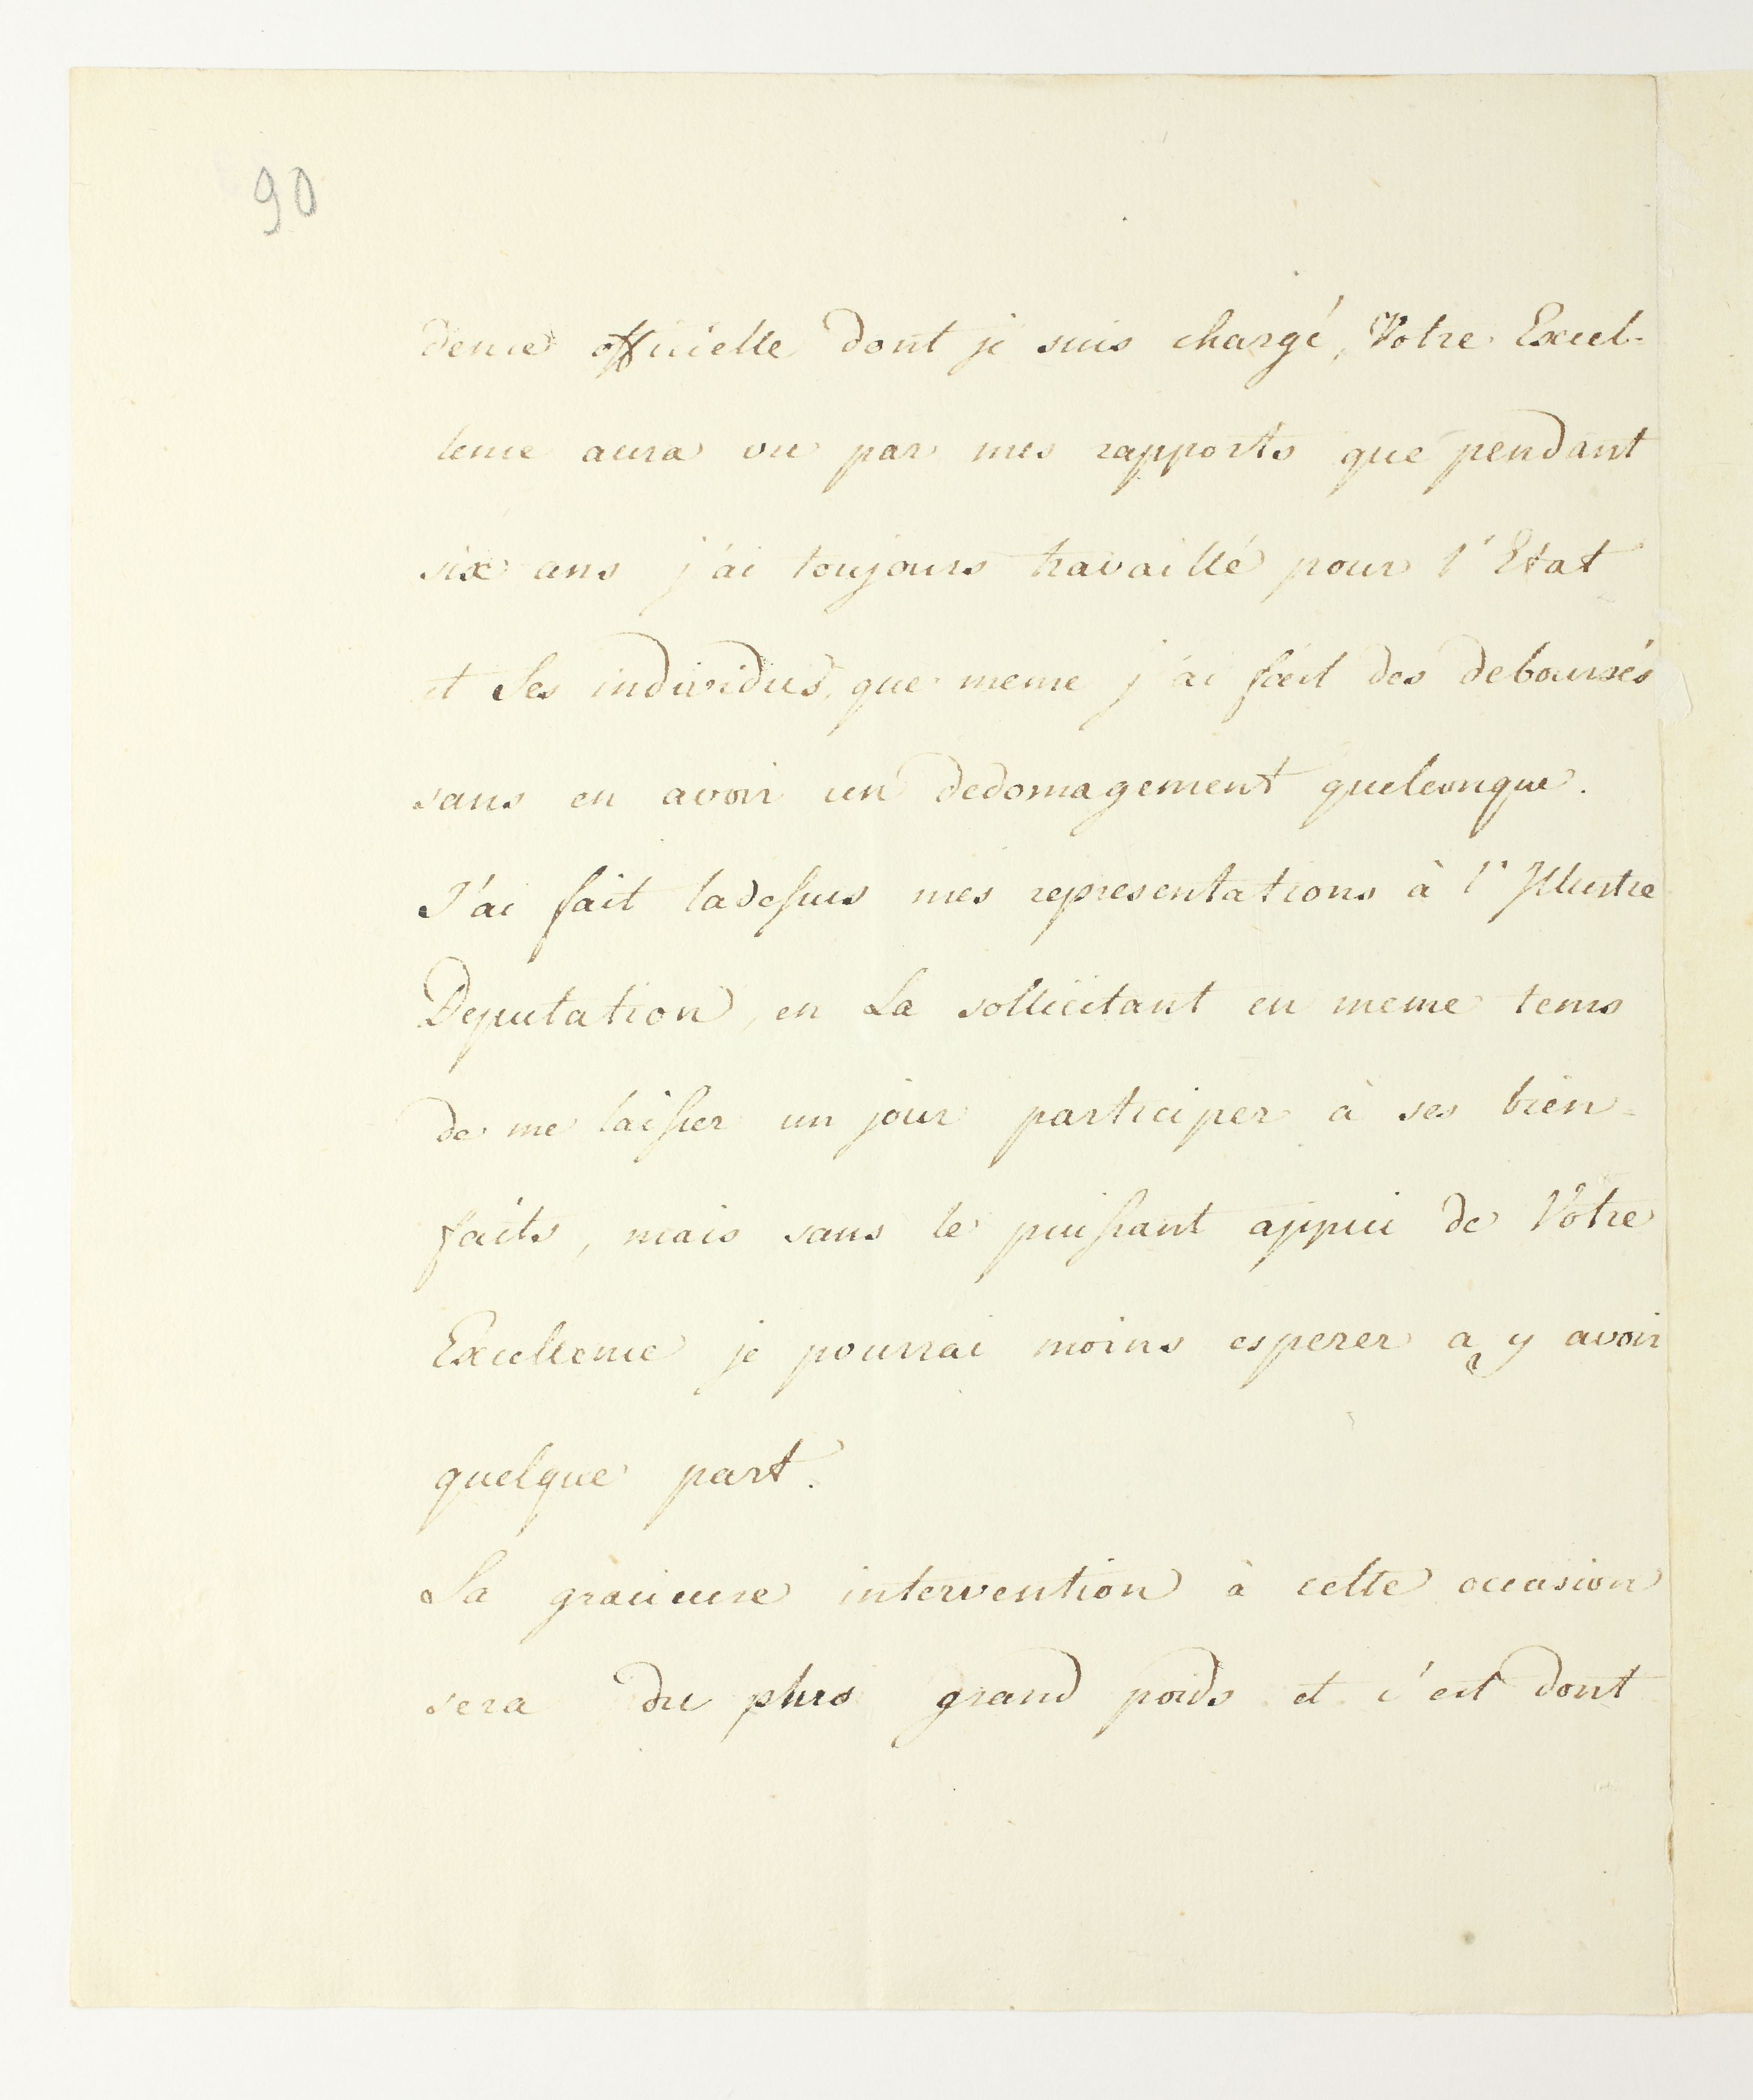 90
dence officielle dont je suis chargé, Votre Excel-
lence aura vu par mes rapports que pendant
six ans j'ai toujours travaillé pour l'Etat
et Ses individus, que meme j'ai fait des deboursés
sans en avoir un dedomagement quelconque.
J'ai fait ladessus mes representations à l'Illustre
Deputation, en La sollicitant en meme tems
de me laisser un jour participer à ses bien-
faits, mais sans le puissant appui de Votre
Excellence je pourrai moins esperer a y avoir
quelque part.
Sa gracieuse intervention à cette occasion
sera du plus grand poids et c'est dont